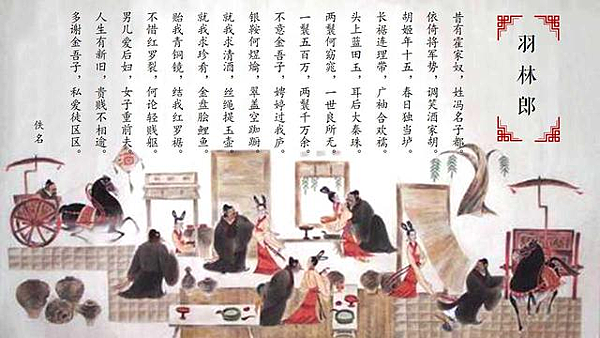 羽林郎
昔有霍家奴，姓冯名子都。
依倚将军势，调笑酒家胡。
胡姬年十五，春日独当垆。
长裾连理带，广袖合欢襦。
头上蓝田玉，耳后大秦珠。
两鬟何窈窕，一世良所无。
一鬟五百万，两鬟千万余。
不意金吾子，娉婷过我庐。
银鞍何煜爚，翠盖空踟蹰。
就我求清酒，丝绳提玉壶。
就我求珍肴，金盘脍鲤鱼。
贻我青铜镜，结我红罗裾。
不惜红罗裂，何论轻贱躯。
男儿爱后妇，女子重前夫。
人生有新旧，贵贱不相逾。
多谢金吾子，私爱徒区区。
佚名